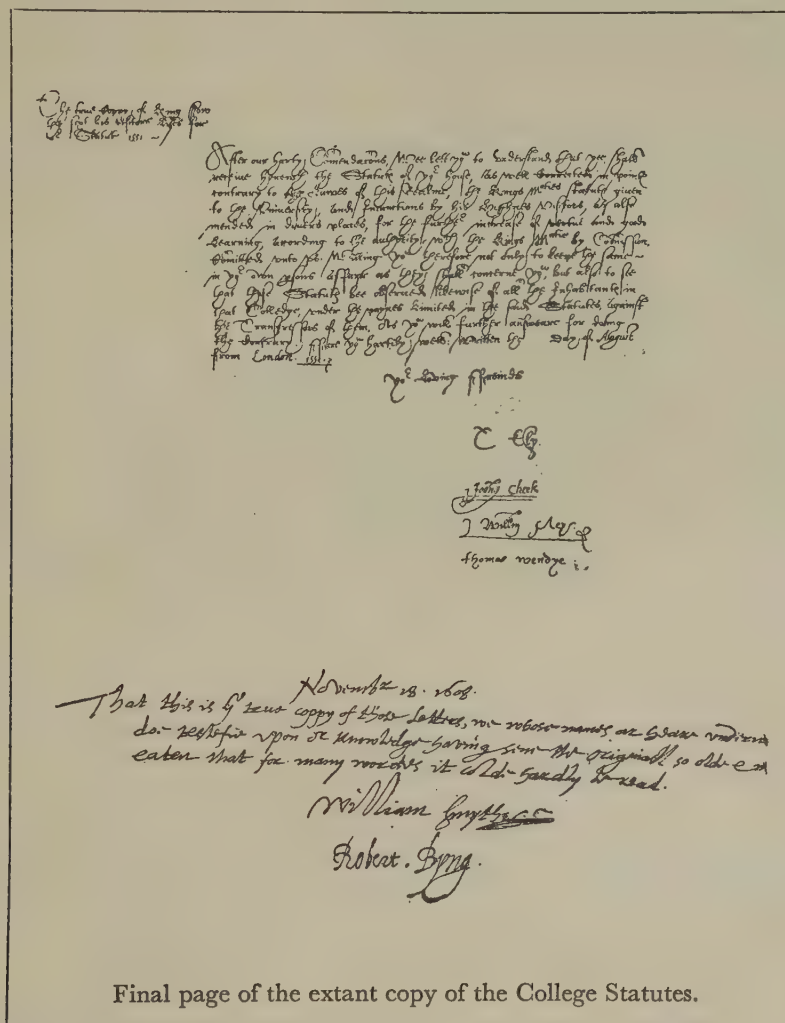 The true Copy of Kings
his visitors letters for
yᵉ Statut 1551
After our harty Comendacons, Wee lett yoᵘ to vnderstand that yee shall
receive through the Statute of yoʳ house, as well corrected in points
contrary to the Lawes of this Realme, the Kings Maties statuts given
to the Vniversity, and Iniunctions by his Highnes Visitors, as also
mended in divers places, for the further increase of vertue and good
Learning, according to the authority wᶜʰ the Kings Matie by Comission
comitted vnto vs. Willing yoᵘ therefore not only to keepe the same
in yoʳ own psons asfarr as they shall concerne yoᵘ but also to se
that these Statuts bee observed likewise of all the Inhabitants in
that Colledge, vnder the paynes limited in the said Statutes, against
the Transgressors of them, As yoᵘ will further answare for doing
the contrary. ffare yoᵘ hartily well. Written the Day of August
from London. 1551.
yoʳ loving ffreinds
T Ely.
John Cheek
Willm Meys
thomas wendye
Novembr 18. 1608.
That this is yᵉ true coppy of those Letters, we whose names ar heare
doe testefie vpon oʳ knowledge having sene the originall, so olde
eaten that for many wordes it colde hardly be read.
William Smythe
Robert. Byng.
Final page of the extant copy of the College Statutes.